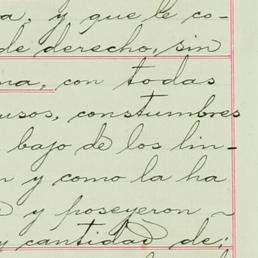 a, y que le co-
de derecho, sin
na, con todas
usos, constumbres
bajo de los lin-
n y como la ha
y poseyeron ~
y cantidad de;